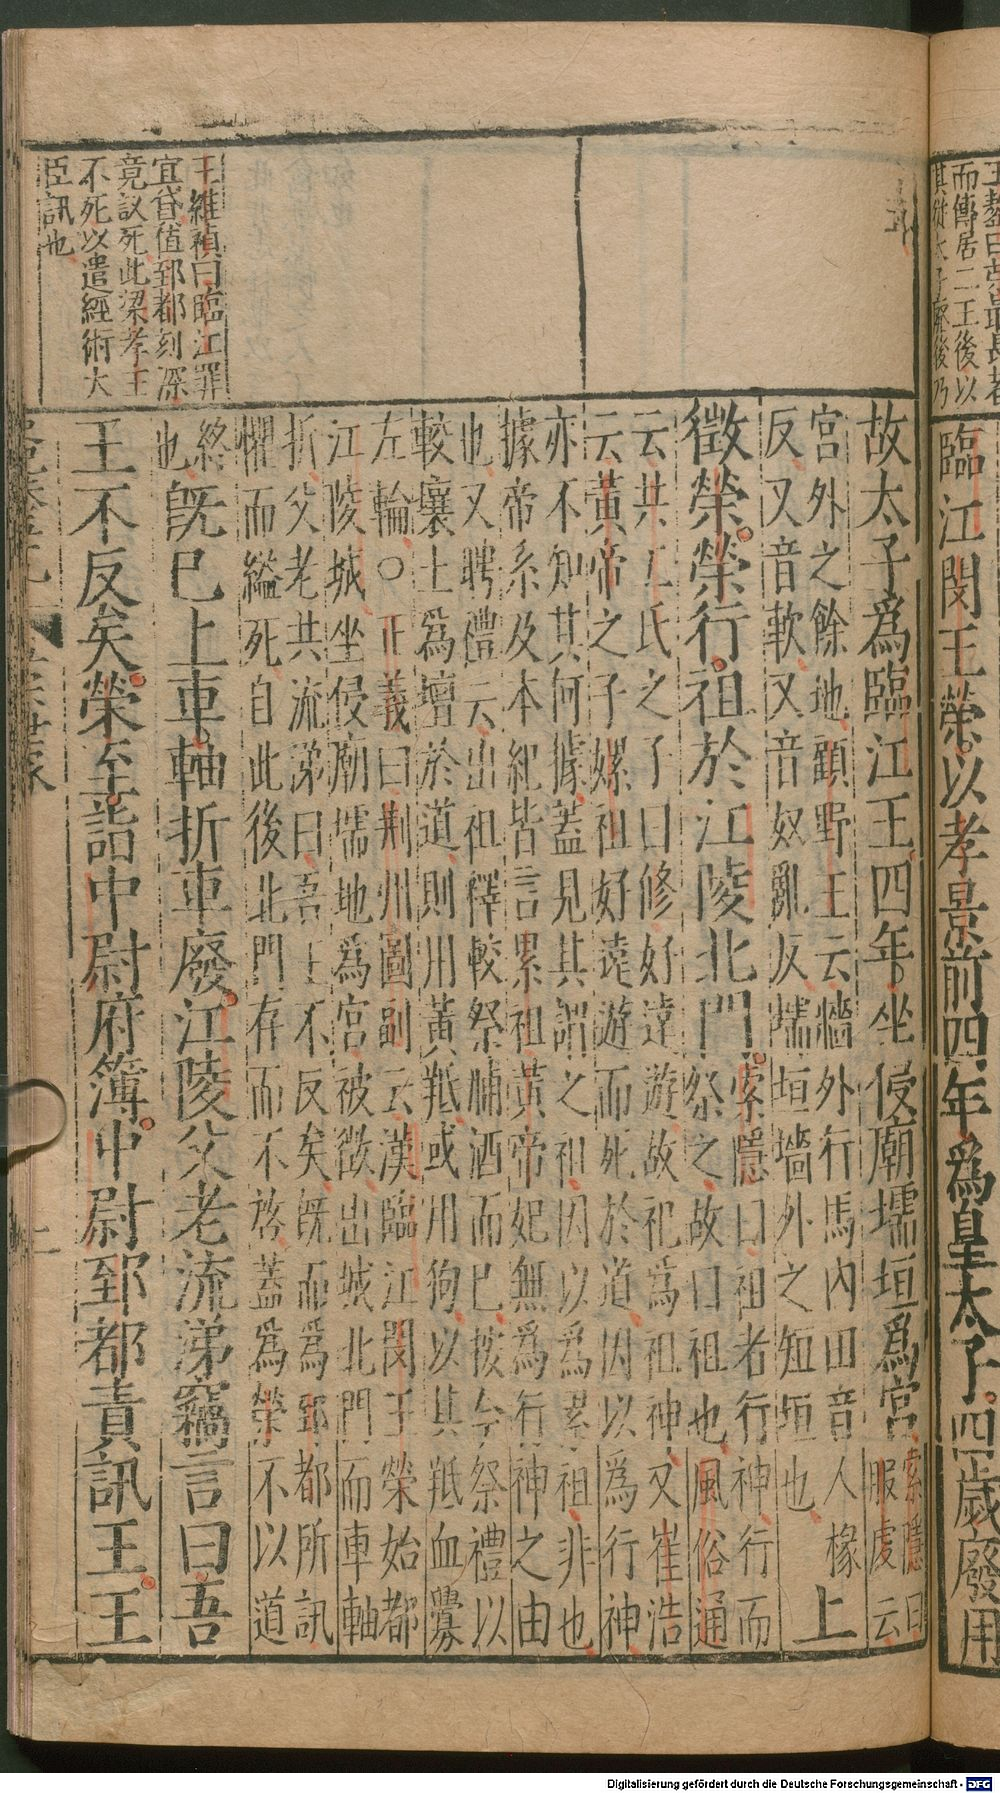 王鏊曰
而傳居二王後以
其從太子廢後乃
臨江閔王榮以孝景前四年爲皇太子四歲廢用
故太子爲臨江王四年坐侵廟壖垣爲宮索隱曰服虔云
宮外之餘地顧野王云牆外行馬內田音人椽
反又音軟又音奴亂反壖垣墻外之短垣也上
徵榮榮行祖於江陵北門索隱曰祖者行神行而
祭之故曰祖也風俗通
云共工氏之子曰修好遠遊故祀爲祖神又崔浩
云黃帝之子嫘祖好遠遊而死於道因以爲行神
亦不知其何據蓋見其謂之祖因以爲累祖非也
據帝系及本紀皆言累祖黃帝妃無爲行神之由
也又聘禮云出祖釋軷祭脯酒而已按今祭禮以
軷壤土爲壇於道則用黃羝或用狗以其羝血釁
左輪○正義曰荆州圖副云漢臨江閔王榮始都
江陵城坐侵廟壖地爲宮被徵出城北門而車軸
折父老共流涕曰吾王不反矣既而爲郅都所訊
懼而縊死自此後北門存而不啓蓋爲榮不以道
終也既已上車軸折車廢江陵父老流涕竊言曰吾
王不反矣榮至詣中尉府簿中尉郅都責訊王王
王維禎曰臨江罪
宜貸值郅都刻深
竟以死此梁孝王
不死以遣經術大
臣訊也
Digitalisierung gefördert durch die Deutsche Forschungsgemeinschaft - DFG